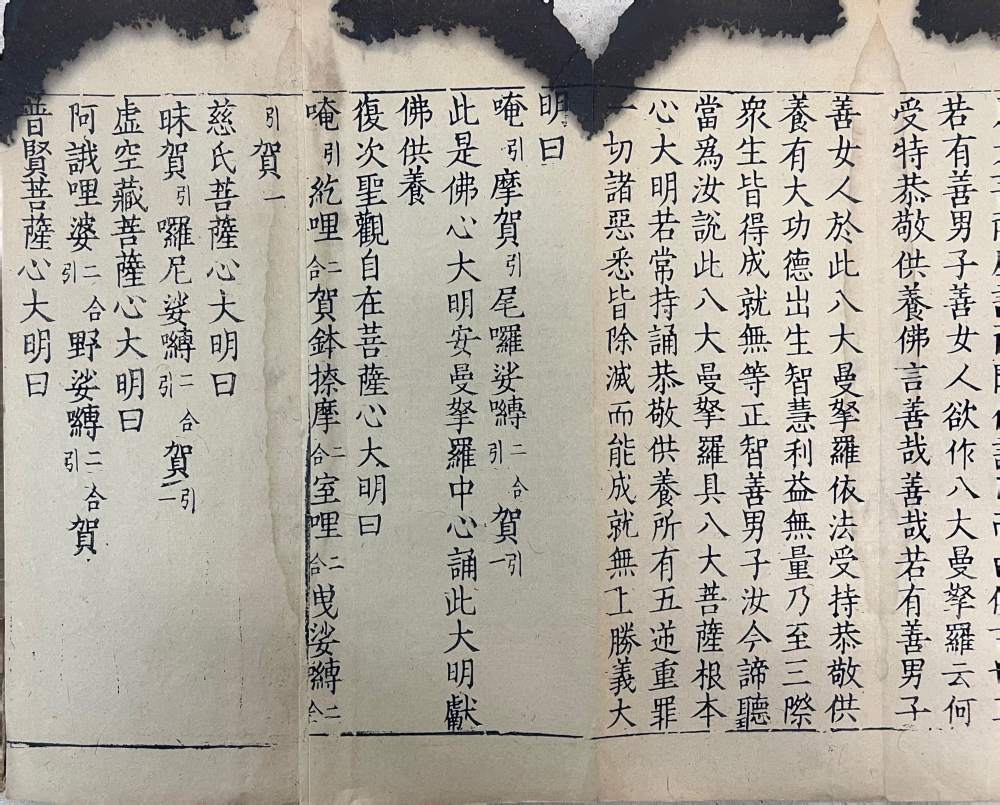 若有善男子善女人欲作八大曼拏羅云何
受特恭敬供養佛言善哉善哉若有善男子
善女人於此八大曼拏羅依法受持恭敬供
養有大功德出生智慧利益無量乃至三際
衆生皆得成就無等正智善男子汝今諦聽
當爲汝說此八大曼拏羅具八大菩薩根本
心大明若常持誦恭敬供養所有五逆重罪
一切諸惡悉皆除滅而能成就無上勝義大
明曰
唵引摩賀引尾囉娑嚩二合引賀引一
此是佛心大明安曼拏羅中心誦此大明獻
佛供養
復次聖觀自在菩薩心大明曰
唵引紇哩二合賀鉢捺摩二合室哩二合曵娑嚩二合
引賀一
慈氏菩薩心大明曰
昧賀引囉尼娑嚩二合引賀引一
虛空藏菩薩心大明曰
阿誐哩婆二合引野娑嚩二合引賀
普賢菩薩心大明曰